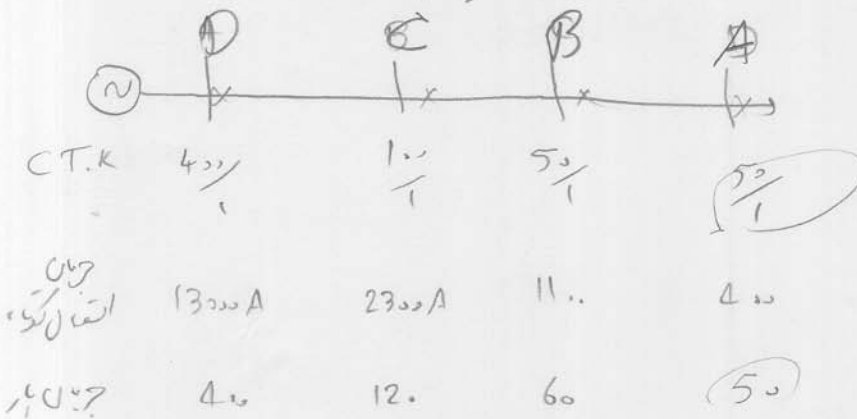 D C B A
~
C T.K 400/1 100/1 50/1 50/1
جریان
اتصال کوتاه 13000A 2300A 1100 400
جریان بار 400 120 60 50